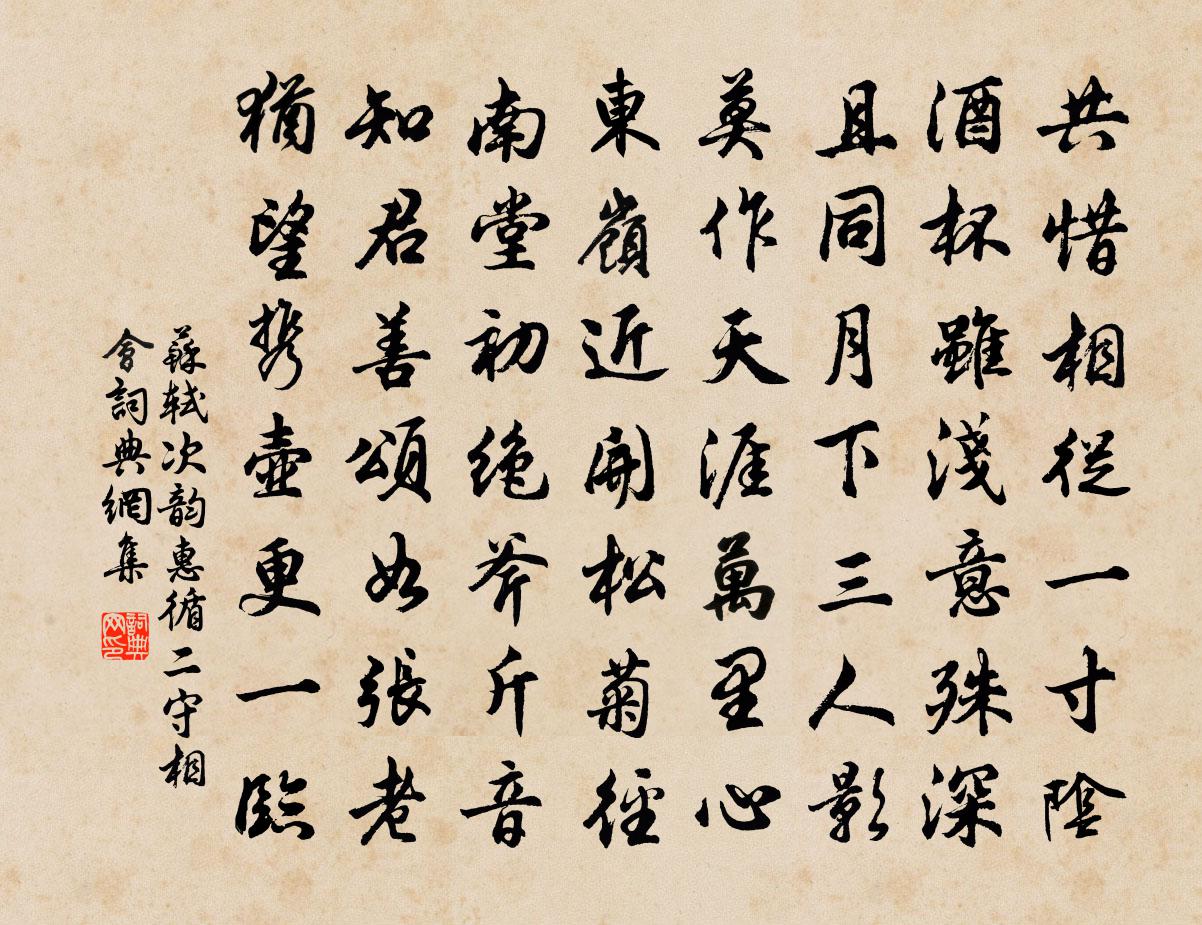 共惜相從一寸陰
酒杯雖淺意殊深
且同月下三人影
莫作天涯萬里心
東嶺近開松菊徑
南堂初絶斧斤音
知君善頌如張老
猶望携壺更一臨
蘇軾次韵惠循二守相
會詞典網集
詞典
网印